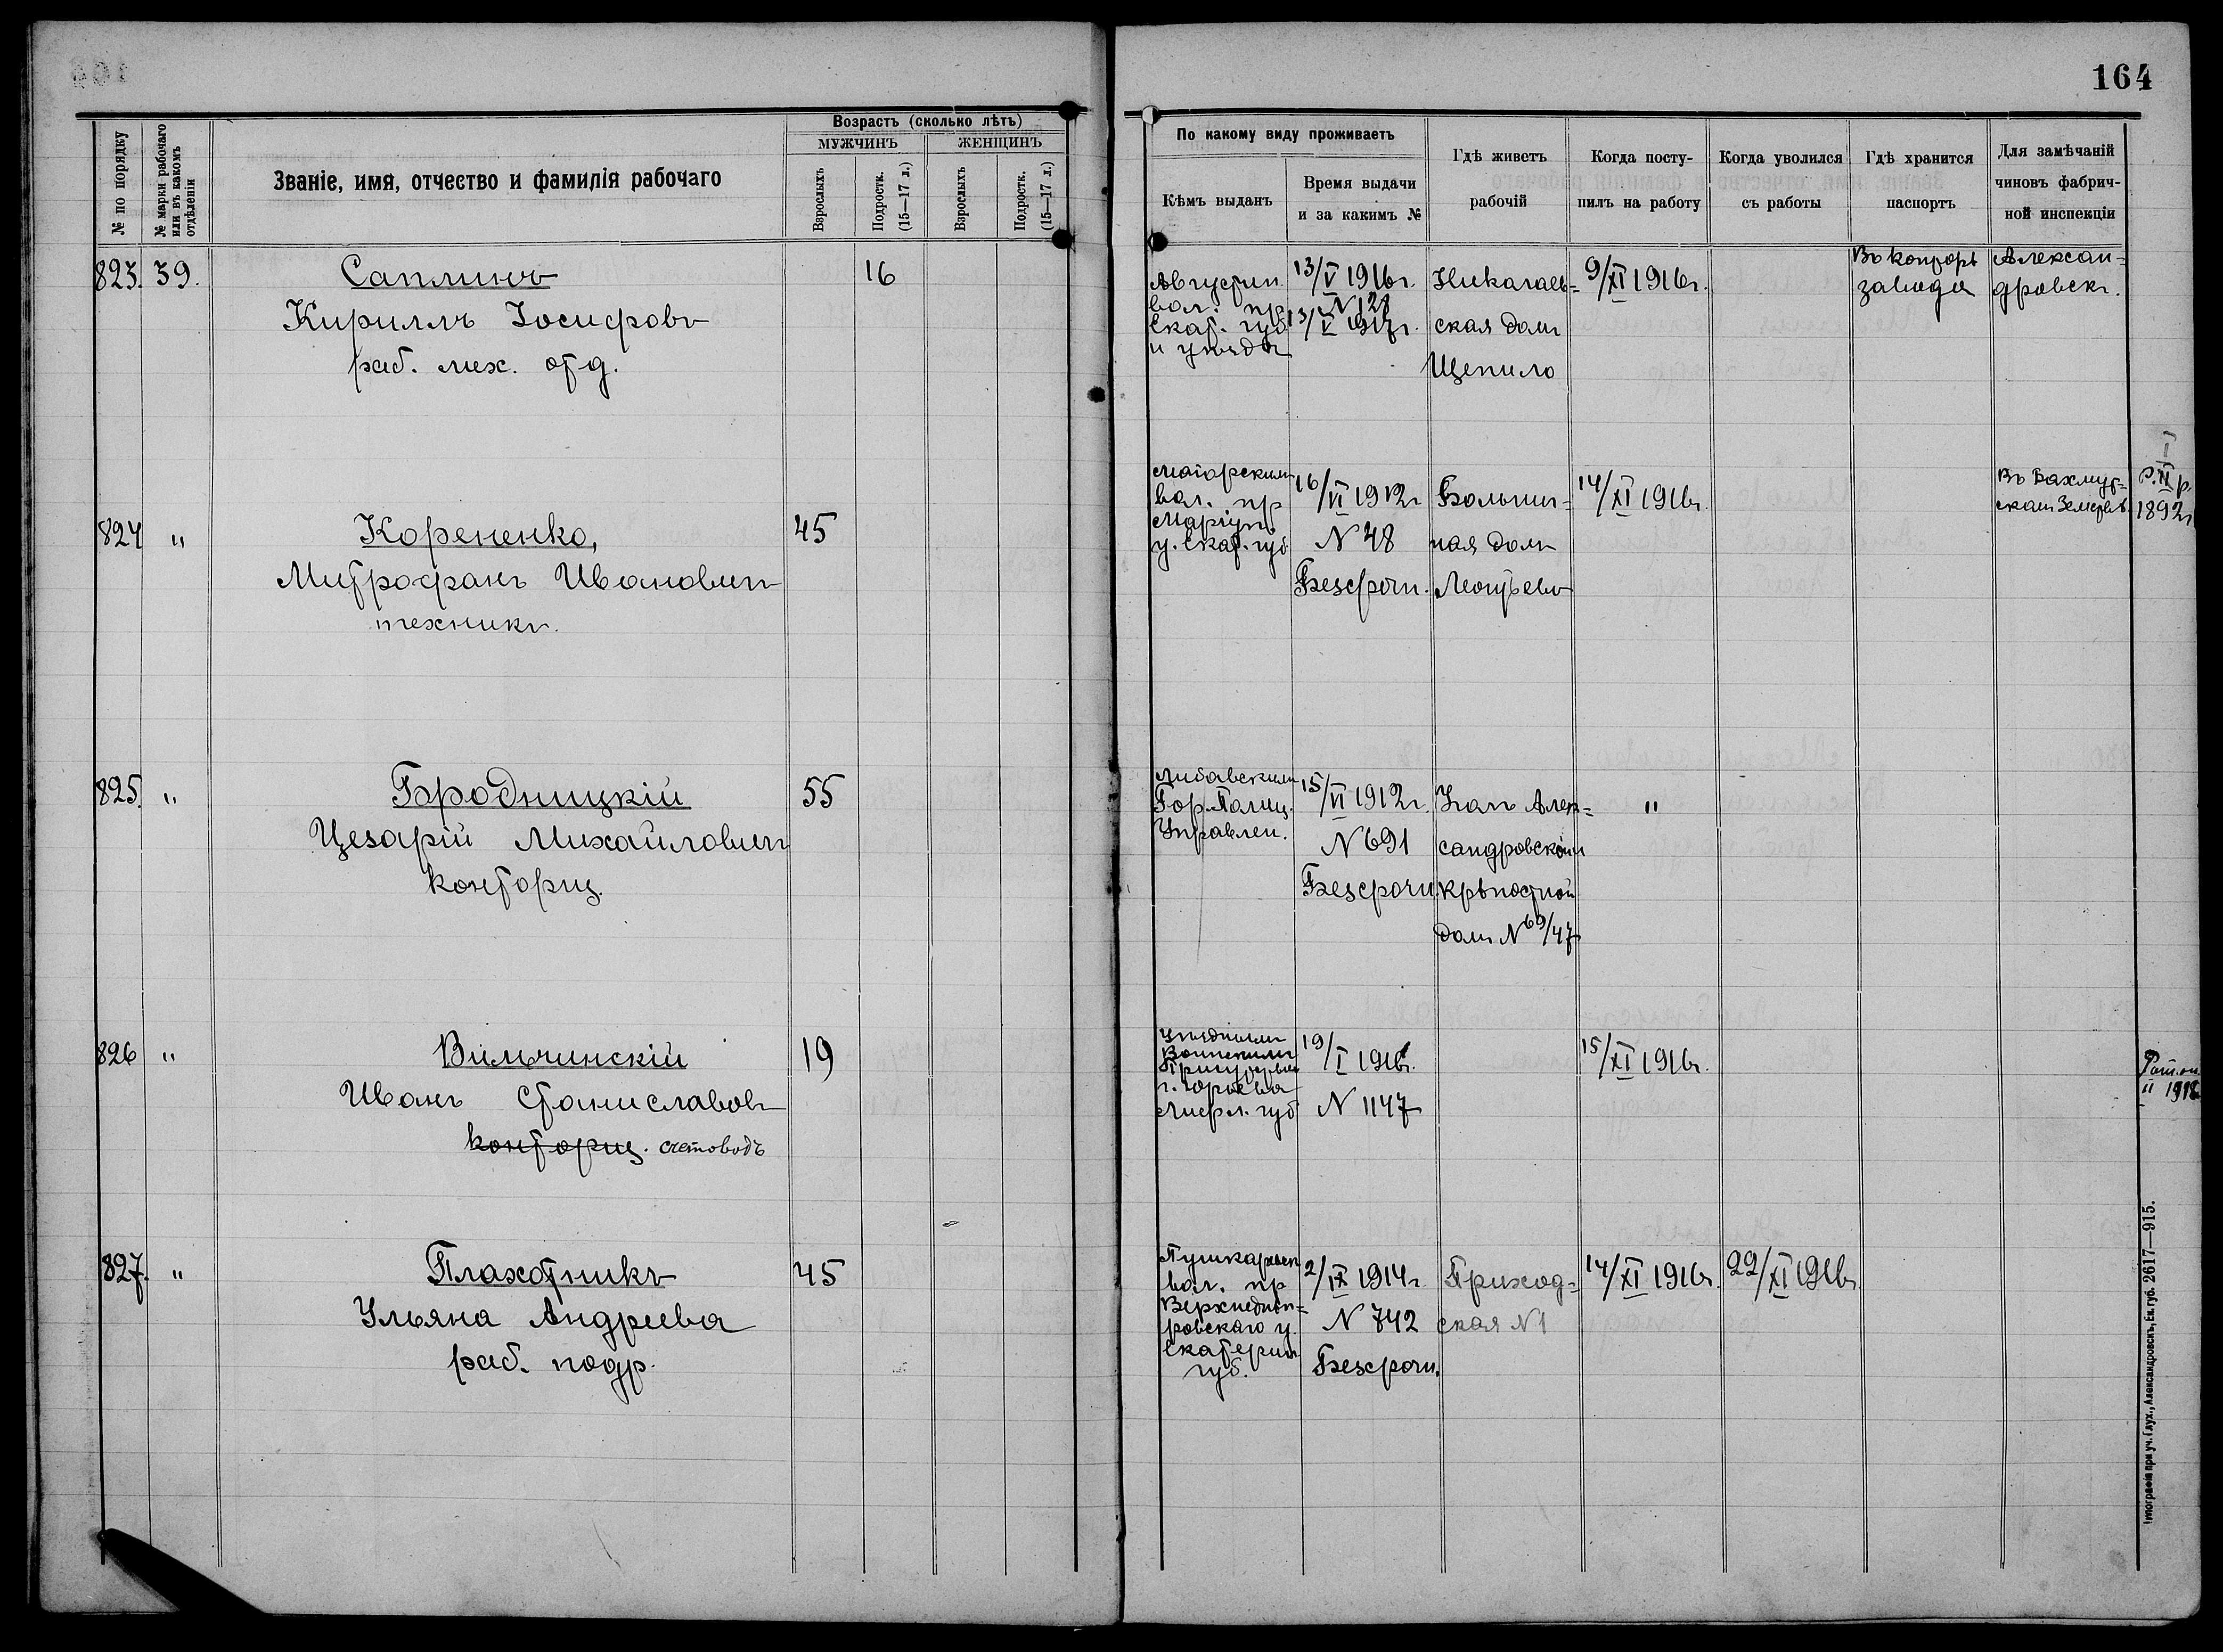 164
№ по порядку
№ марки рабочаго или въ какомъ отдѣленіи
Званіе, имя, отчество и фамилія рабочаго
Возрастъ (сколько лѣтъ)
МУЖЧИНЪ
ЖЕНЩИНЪ
Взрослыхъ
Подростк. (15—17 л.)
Взрослыхъ
Подростк. (15—17 л.)
По какому виду проживаетъ
Кѣмъ выданъ
Время выдачи
и за какимъ №
Гдѣ живетъ
рабочій
Когда посту-
пилъ на работу
Когда уволился
съ работы
Гдѣ хранится
паспортъ
Для замѣчаній
чиновъ фабрич-
ной инспекціи
823. 39.
Саплинъ
Кириллъ Іосифовъ
раб. мех. отд.
16
Августин.
вол. пр
Екат. губ
и уѣзда
13/V 1916г.
N 128
13/V 1917г.
Николаев=
ская домъ
Щепило
9/XI 1916г.
Въ конторѣ
завода
Алексан=
дровскъ.
824 "
Корененко,
Митрофанъ Ивановичъ
техникъ.
45
Маіорскимъ
вол. пр
Маріуп.
у. Екат. губ
16/VI 1912г
N 48
Безсрочн.
Больнич=
ная домъ
Леонтьева
14/XI 1916г.
Въ Бахмут=
скомъ Земствѣ
I
Р. II р.
1892г
825. "
Бродницкій
Цезарій Михайловичъ
конторщ.
55
Либавскимъ
Гор. Полиц.
Управлен.
15/VI 1912г.
N 691
Безсрочн.
Уголъ Алек=
сандровской и
крѣпостной
домъ N 69/47
"
826 "
Вильчинскій
Иванъ Станиславовъ
конторщ. счетоводъ
19
Уѣзднымъ
Воинскимъ
Присутствіем
г. Юрьева
Лифл. губ
19/I 1916г.
N 1147
15/XI 1916г.
II 1918
827. "
Плахотникъ
Ульяна Андреева
раб. подр.
45
Пушкаревск
вол. пр
Верхнеднѣп=
ровскаго у.
Екатерин
губ.
2/IX 1914г.
N 742
Безсрочн.
Приход=
ская N 1
14/XI 1916г.
22/XI 1916г.
Типографія при уч. Глух., Александровскъ, Ек. губ. 2617—915.